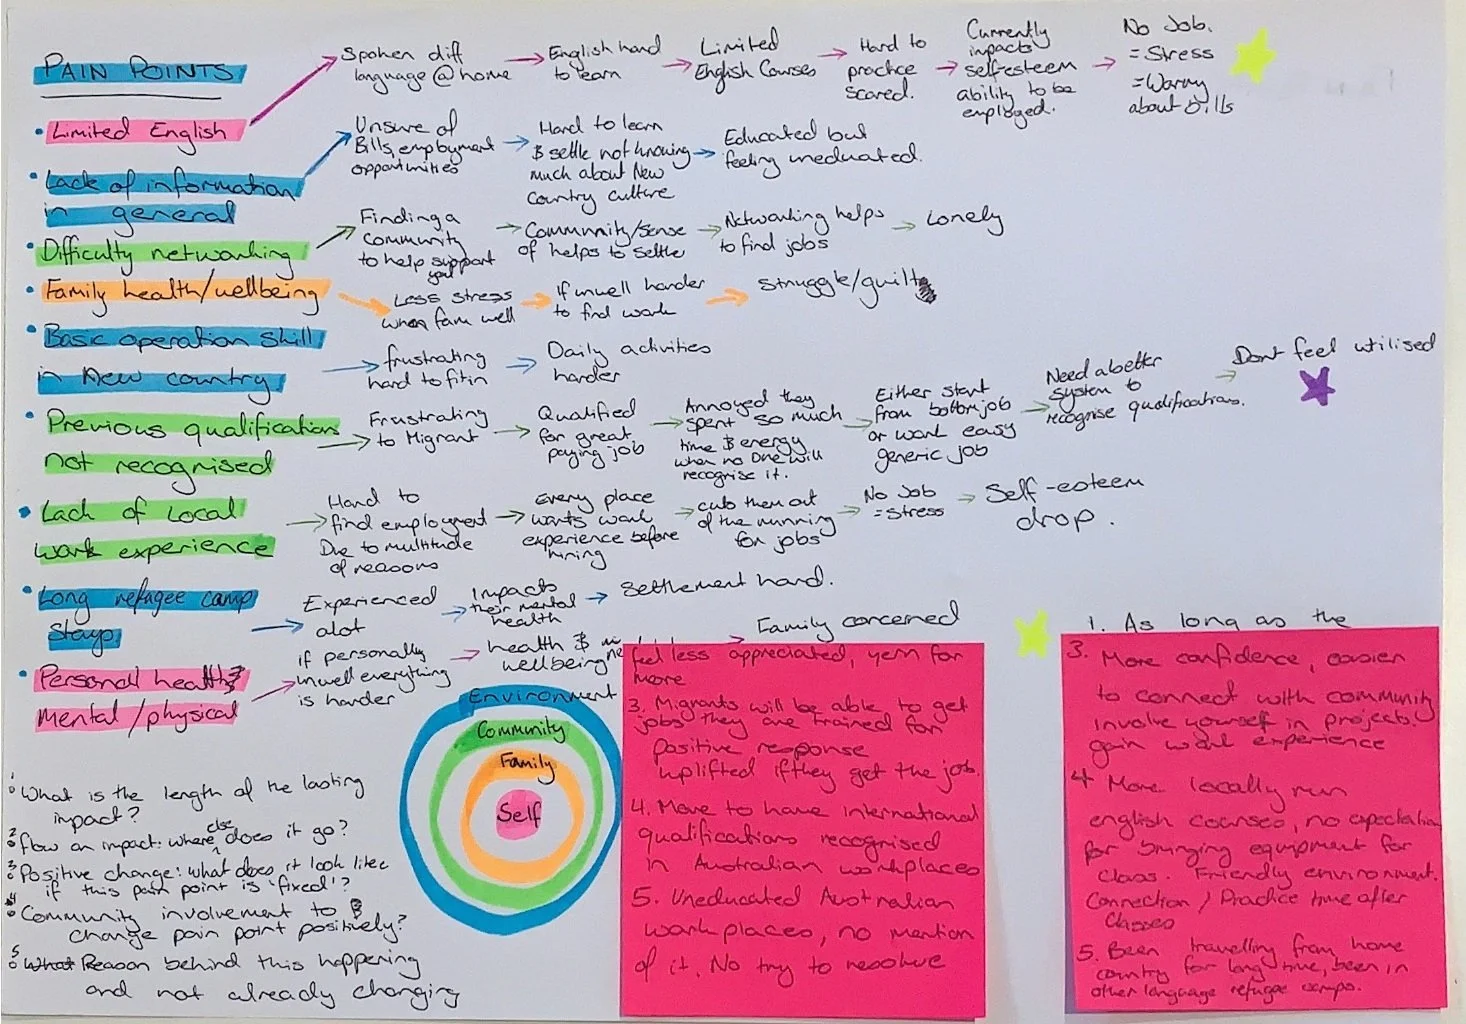 PAIN POINTS
• Limited English
Spoken diff
language @ home
English hard
to learn
Limited
English Courses
Hard to
practice
scared.
Currently
impacts
self-esteem
ability to be
employed.
No Job.
= Stress
= Worry
about bills
• Lack of information
in general
Unsure of
Bills, employment
opportunities
Hard to learn
& settle not knowing
much about New
Country culture
Educated but
feeling uneduated.
• Difficulty networking
Finding a
community
to help support
you
Community/sense
of helps to settle
Networking helps
to find jobs
Lonely
• Family health/wellbeing
Less stress
when fam well
If unwell harder
to find work
Struggle/guilt
• Basic operation skill
in New country
frustrating
hard to fit in
Daily activities
harder
• Previous qualification
not recognised
Frustrating
to Migrant
Qualified
for great
paying job
Annoyed they
spent so much
time & energy
when no one will
recognise it.
Either start
from bottom job
or work easy
generic job
Need a better
system to
recognise qualifications.
Dont feel utilised
• Lack of Local
work experience
Hard to
find employment
Due to multitude
of reasons
Every place
wants work
experience before
hiring
cuts them out
of the running
for jobs
No Job
= Stress
Self-esteem
drop.
• Long refugee camp
stays.
Experienced
alot
Impacts
their mental
health
Settlement hard.
• Personal health
Mental/physical
if personally
unwell everything
is harder
health &
wellbeing
Family concerned
Environment
Community
Family
Self
1. What is the length of the lasting
impact?
2. flow on impact: where else does it go?
3. Positive change: what does it look like
if this pain point is 'fixed'?
4. Community involvement to
change pain point positively?
5. What Reason behind this happening
and not already changing
feel less appreciated, yern for
more
3. Migrants will be able to get
jobs they are trained for
positive response
uplifted if they get the job.
4. More to have international
qualifications recognised
in Australian workplaces
5. Uneducated Australian
workplaces, no mention
of it. No try to resolve
1. As long as the
3. More confidence, easier
to connect with community
involve yourself in projects.
gain work experience
4 More locally run
english courses, no expectation
for bringing equipment for
class. Friendly environment.
Connection / Practice time after
classes
5. Been travelling from home
country for long time, been in
other language refugee camps.